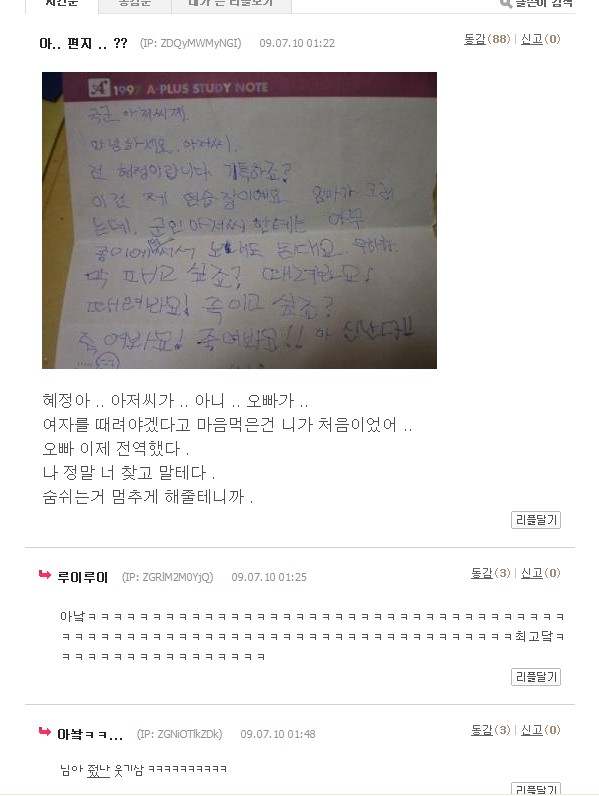 시간순 공감순 내가 쓴 리플보기 글쓴이 검색
아.. 편지 .. ?? (IP: ZDQyMWMyNGI) 09.07.10 01:22 동감(88) | 신고(0)
A 1997 A-PLUS STUDY NOTE
국군 아저씨께.
안녕하세요. 아저씨.
전 혜정이랍니다. 기특하죠?
이건 제 연습장이예요 엄마가 그러
는데, 군인아저씨한테는 아무
종이에 써서 보내도 된대요.
막 패고 싶죠? 때려봐요!
때려봐요! 죽이고 싶죠?
죽여봐요! 죽여봐요!! 아 신난다!!
혜정아 .. 아저씨가 .. 아니 .. 오빠가 ..
여자를 때려야겠다고 마음먹은건 니가 처음이었어 ..
오빠 이제 전역했다 .
나 정말 너 찾고 말테다 .
숨쉬는거 멈추게 해줄테니까 .
리플달기
루이루이 (IP: ZGRlM2M0YjQ) 09.07.10 01:25 동감(3) | 신고(0)
아닠ㅋㅋㅋㅋㅋㅋㅋㅋㅋㅋㅋㅋㅋㅋㅋㅋㅋㅋㅋㅋㅋㅋㅋㅋㅋㅋㅋㅋㅋ
ㅋㅋㅋㅋㅋㅋㅋㅋㅋㅋㅋㅋㅋㅋㅋㅋㅋㅋㅋㅋㅋㅋㅋㅋㅋㅋㅋ최고닼ㅋ
ㅋㅋㅋㅋㅋㅋㅋㅋㅋㅋㅋㅋㅋ
리플달기
아놬ㅋㅋ... (IP: ZGNiOTlkZDk) 09.07.10 01:48 동감(3) | 신고(0)
님아 젔난 웃기삼 ㅋㅋㅋㅋㅋㅋㅋㅋㅋㅋ
리플달기